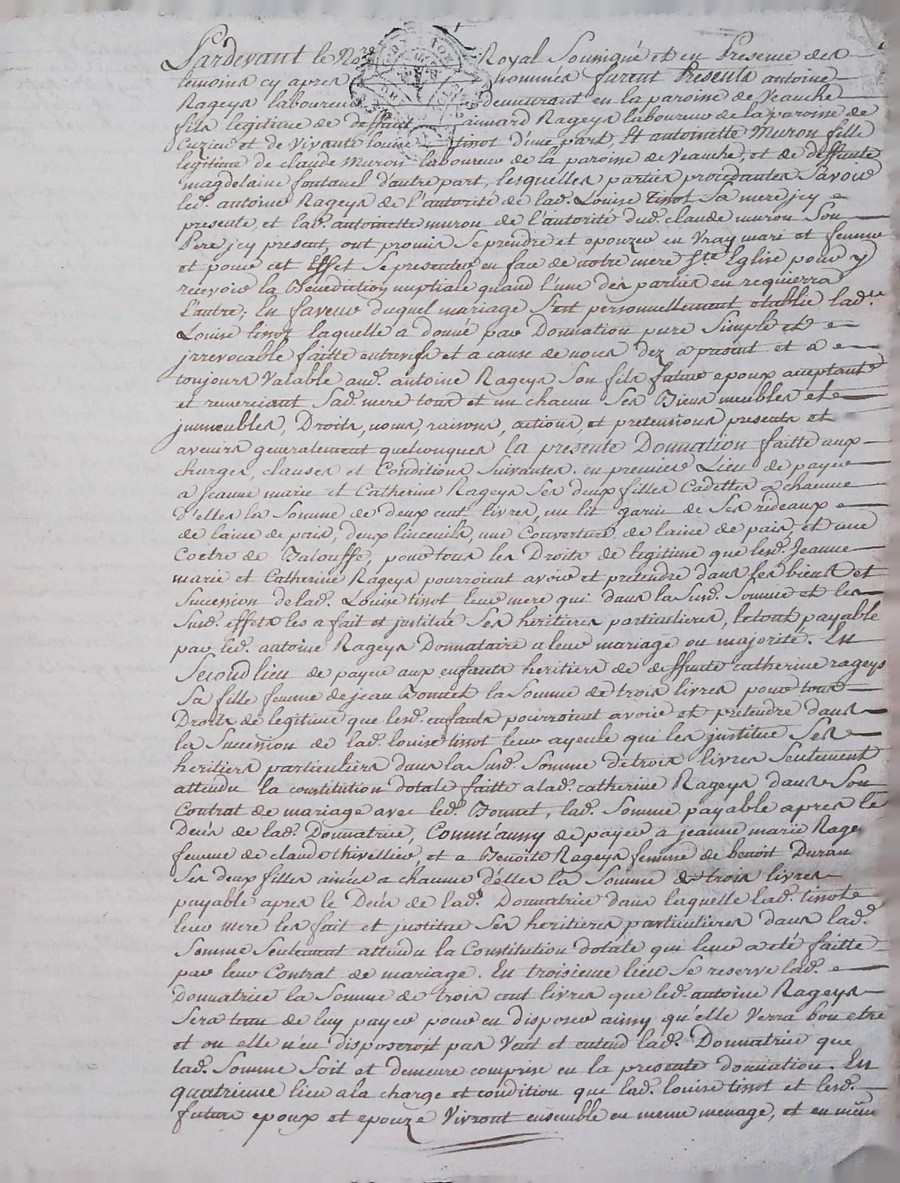 Pardevant le No.re Royal Sousigné et en Presence des
temoins cy apres nommés furent Presents antoine
Rageys laboureur demeurant en la paroisse de Veauche
fils legitime de deffunt annard Rageys laboureur de la paroisse de
Cuzieu et de vivante louise tissot d'une part, Et antoinette Muron fille
legitime de claude Muron laboureur de la paroisse de Veauche, et de deffunte
magdelaine fontanel d'autre part, lesquelles parties procedantes Savoir
led. antoine Rageys de l'autorité de lad. Louise tissot Sa mere jcy
presente, et lad. antoinette muron de l'autorité dud. claude muron Son
Pere jcy present, ont promis Se prendre et epouzer en Vray mari et femme
et pour cet Effet Se presenter en face de notre mere Ste Eglise pour y
recevoir la Benediction nuptiale quand l'une des parties en requierra
L'autre; En faveur duquel mariage S'est personnellement etablie lad.
Louise tissot laquelle a donné par Donnation pure Simple et
jrrevocable faitte entrevifs et a cause de noces dez a present et a
toujours Valable aud. antoine Rageys Son fils futur epoux acceptant
et remerciant Sad. mere tous et un chacun Ses Biens meubles et
jmmeubles, Droits, noms, raisons, actions, et pretensions presents et
avenirs generalement quelconques la presente Donnation faitte aux
charges, clauses et Conditions Suivantes. en premier Lieu de payer
a Jeanne marie et Catherine Rageys Ses deux filles Cadettes a chacune
d'elles la Somme de deux cent livres, un lit garni de Ses rideaux
de laine de pais, deux linceuils, une Couverture de laine de pais, et une
Coetre de Balouffe, pour tous les Droits de legitime que lesd. Jeanne
marie et Catherine Rageys pourroient avoir et pretendre dans ses biens et
Succession de lad. Louise tissot leur mere qui dans la Susd. Somme et les
Susd. effets les a fait et jnstitué Ses heritieres particulieres, le tout payable
par led. antoine Rageys Donnataire a leur mariage ou majorité. En
Second lieu de payer aux enfants heritiers de deffunte catherine rageys
Sa fille femme de jean Bonnet la Somme de trois livres pour tous
Droits de legitime que lesd. enfants pourroient avoir et pretendre dans
la Succession de lad. louise tissot leur ayeule qui les jnstitue Ses
heritiers particuliers dans la Susd. Somme de trois livres Seulement
attendu la constitution dotale faitte a lad. catherine Rageys dans Son
Contrat de mariage avec led. Bonnet, lad. Somme payable apres le
Deces de lad. Donnatrice, Comm'aussy de payer à jeanne marie Rage
femme de claude thivellier, et a Benoite Rageys femme de benoit Duran
Ses deux filles ainées a chacune d'elles la Somme de trois livres
payable apres le Deces de lad. Donnatrice dans laquelle lad. tissot
leur mere les fait et jnstitue Ses heritieres particulieres dans lad.
Somme Seulement attendu la Constitution dotale qui leur a eté faitte
par leur Contrat de mariage. En troisieme lieu Se reserve lad.
Donnatrice la Somme de trois cent livres que led. antoine Rageys
Sera tenu de luy payer pour en disposer ainsy qu'elle Verra bon etre
et ou elle n'en disposeroit pas Veut et entend lad. Donnatrice que
lad. Somme Soit et demeure comprise en la presente donnation. En
quatrieme lieu a la charge et condition que lad. louise tissot et lesd.
futurs epoux et epouze Vivront ensemble en meme menage, et en